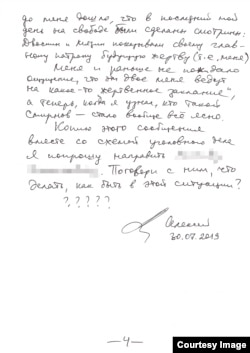 до меня дошло, что в последний мой
день на свободе были сделаны смотрины:
Двоскин и Мязин показывали своему глав-
ному патрону будущую жертву (т.е. меня)
Меня и раньше не покидало
ощущение, что эти двое меня ведут
на какое-то "жертвенное заклание",
а теперь, когда я узнал, кто такой
Смирнов — стало вообще всё ясно.
Копию этого сообщения
вместе со схемой уголовного дела
я попрошу направить
Поговори с ним, что
делать, как быть в этой ситуации?
? ? ? ? ?
30.07.2013
— 4 —
Courtesy Image